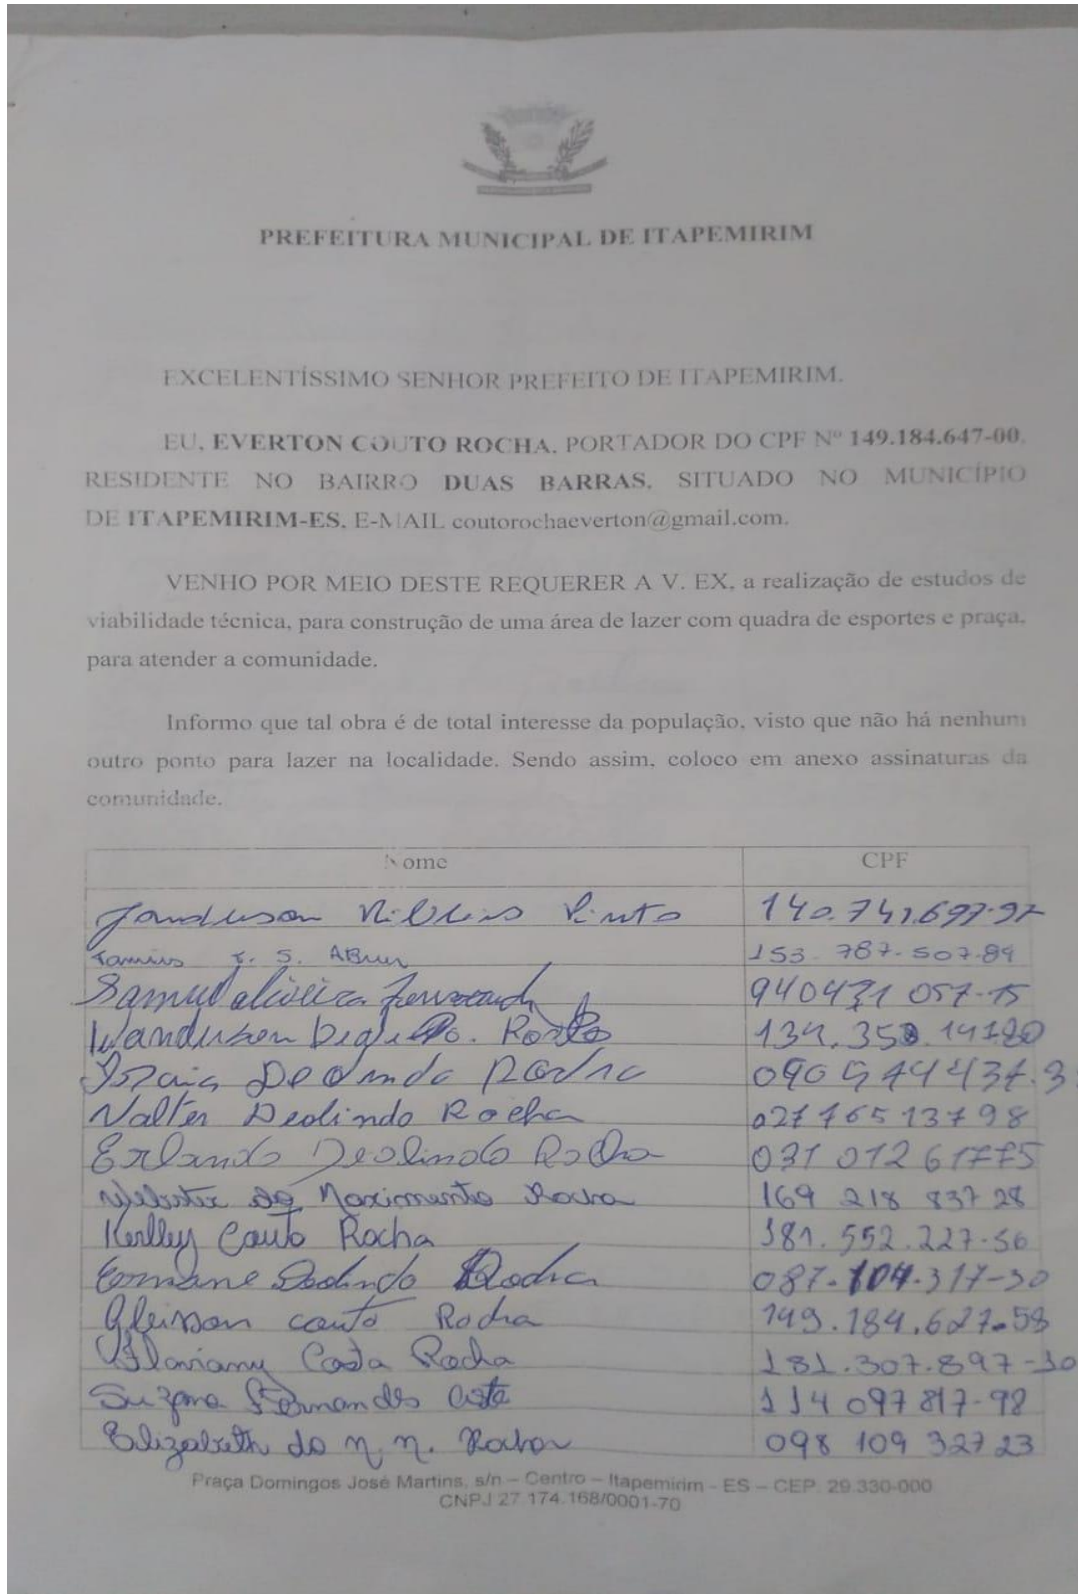 PREFEITURA MUNICIPAL DE ITAPEMIRIM
EXCELENTÍSSIMO SENHOR PREFEITO DE ITAPEMIRIM.
EU, EVERTON COUTO ROCHA, PORTADOR DO CPF Nº 149.184.647-00,
RESIDENTE NO BAIRRO DUAS BARRAS, SITUADO NO MUNICÍPIO
DE ITAPEMIRIM-ES, E-MAIL coutorochaeverton@gmail.com.
VENHO POR MEIO DESTE REQUERER A V. EX, a realização de estudos de
viabilidade técnica, para construção de uma área de lazer com quadra de esportes e praça,
para atender a comunidade.
Informo que tal obra é de total interesse da população, visto que não há nenhum
outro ponto para lazer na localidade. Sendo assim, coloco em anexo assinaturas da
comunidade.
Nome CPF
Pinto 140.741.697-97
S. 153.787.507-89
Samuel oliveira 940471 057-15
Wanderson
Deolindo Rocha
Valter Deolindo Rocha 027 765 137 98
Erlando Deolindo Rocha 031 012 617 75
do Nascimento Rocha 169 218 837 28
Kerlley Couto Rocha 181.552.227-56
Deolindo Rocha 087.104.317-30
Gleisson couto Rocha 149.184.627-58
Flaviany Costa Rocha 181.307.897-10
Suzana Fernandes Costa 114 097 817-98
Elizabeth do N. N. Rocha 098 109 327 23
Praça Domingos José Martins, s/n – Centro – Itapemirim - ES – CEP. 29.330-000
CNPJ 27.174.168/0001-70